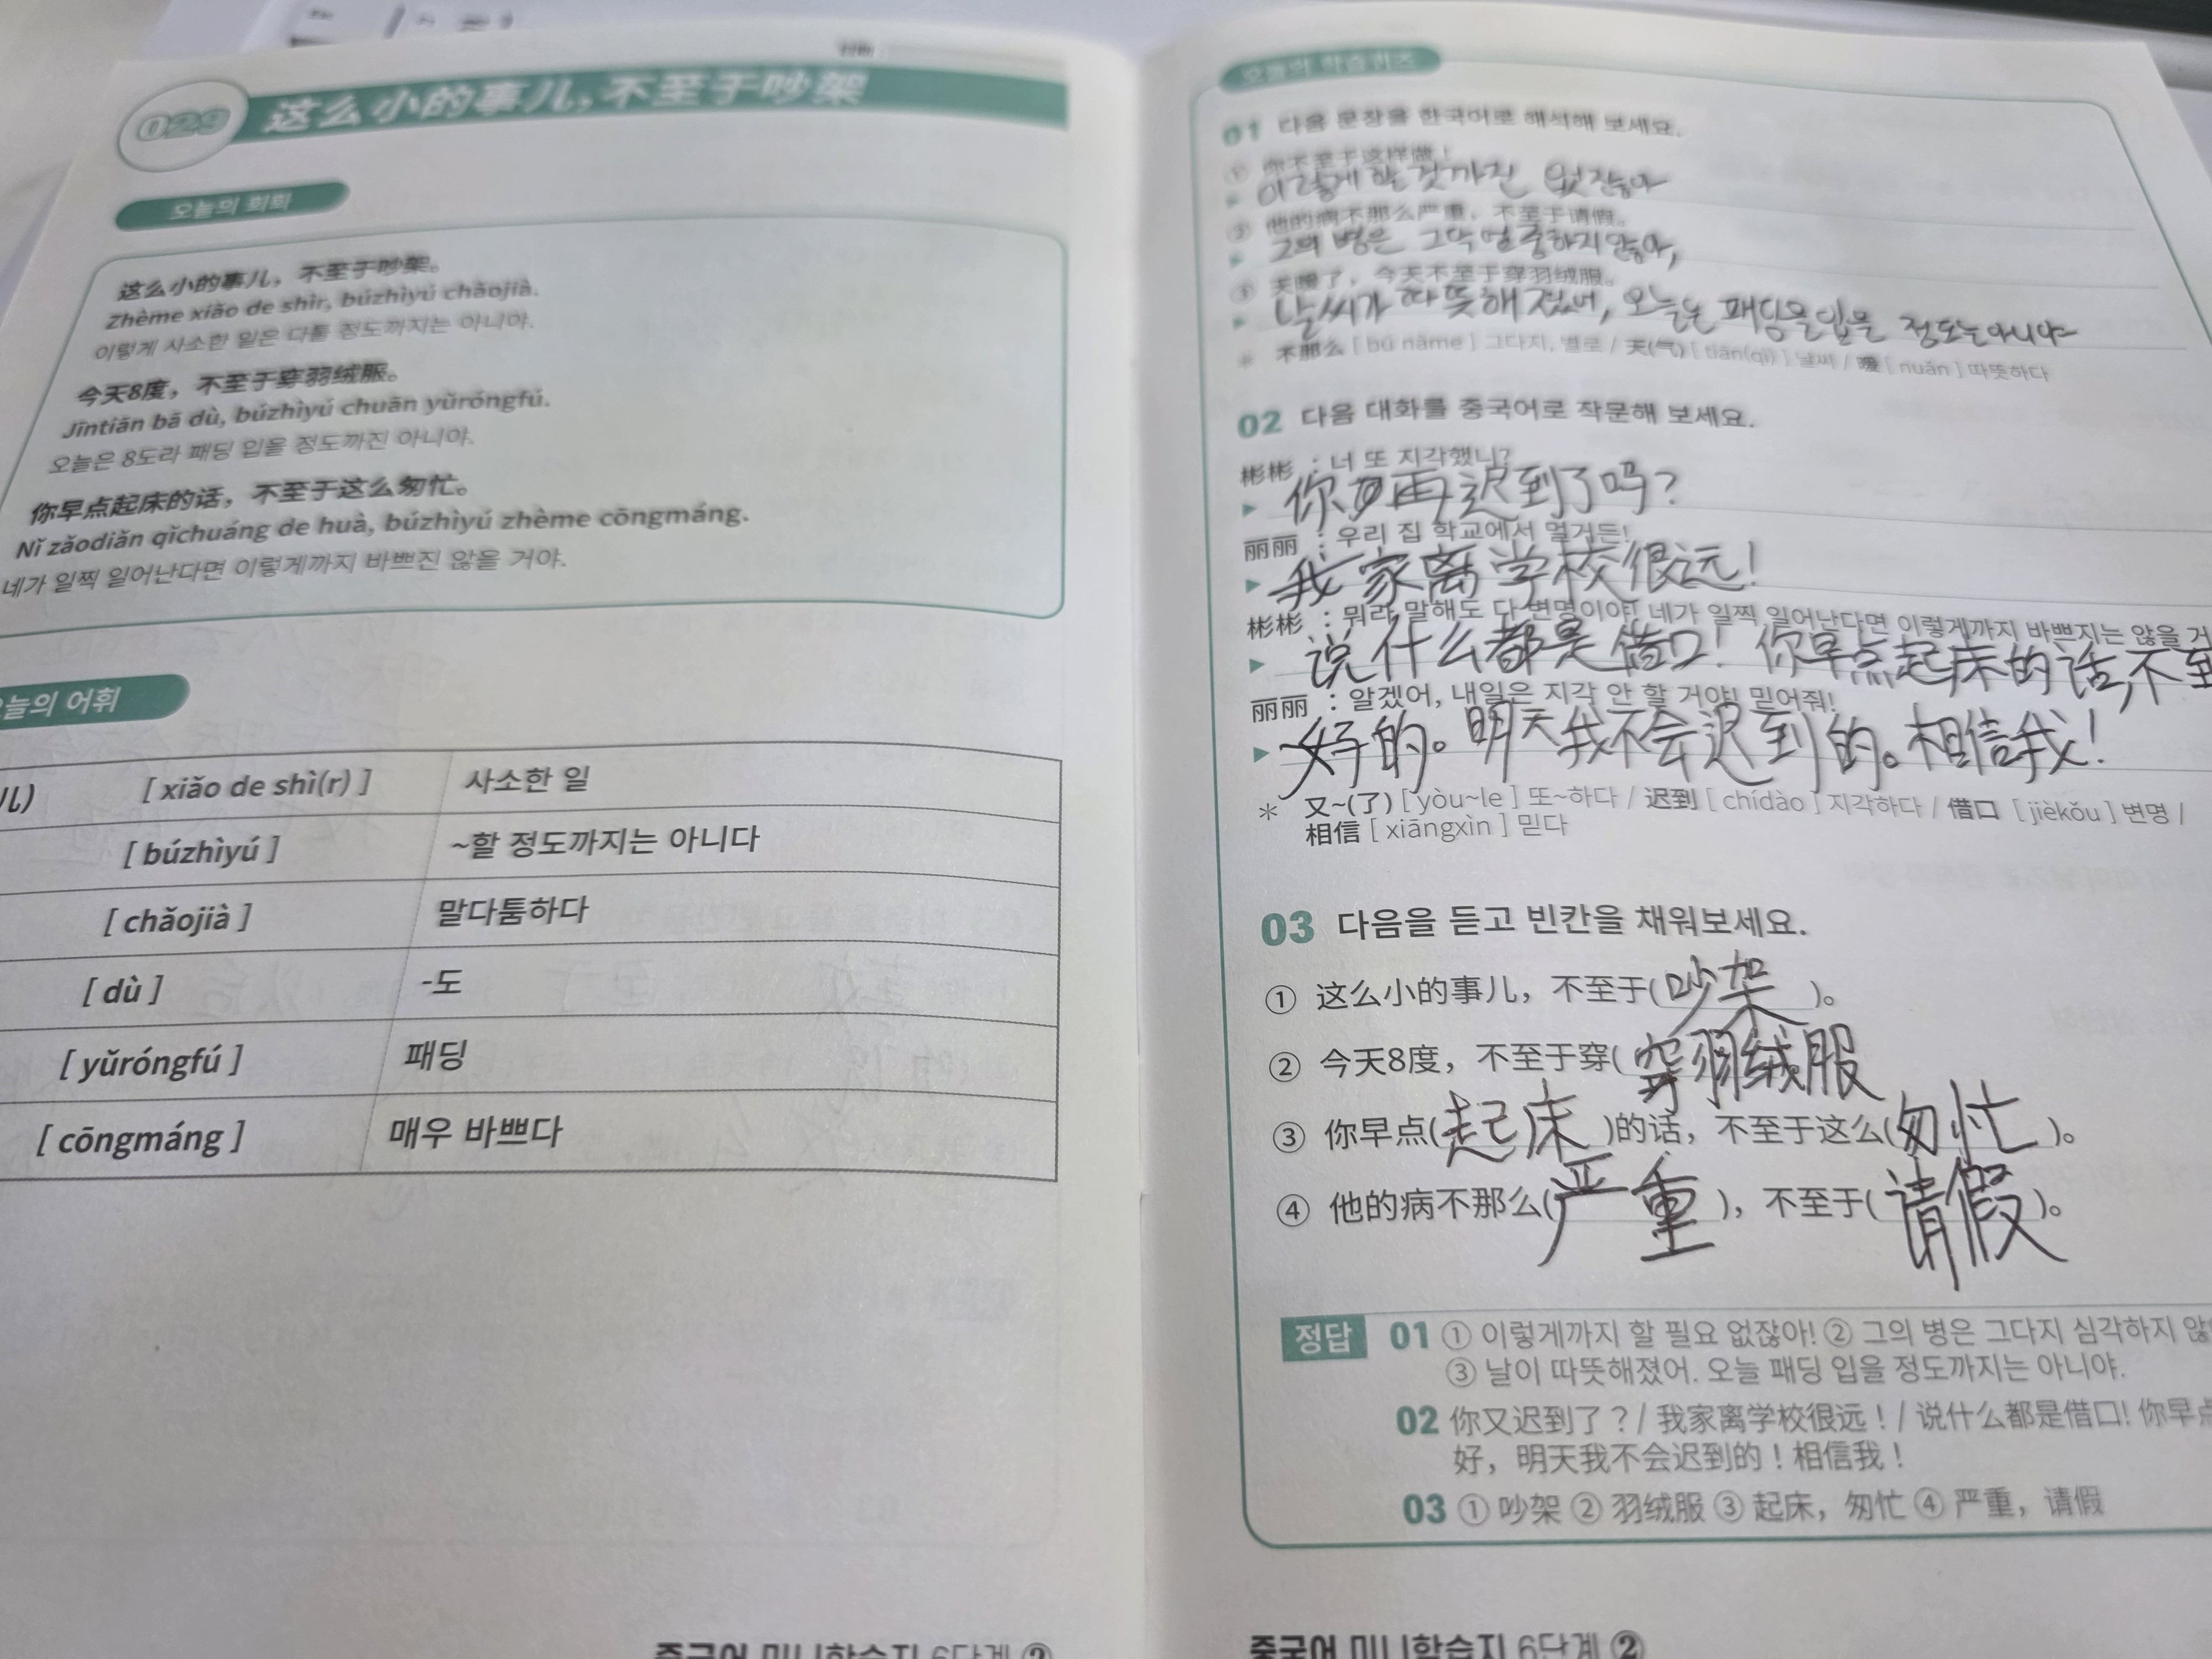 029 这么小的事儿，不至于吵架
오늘의 회화
这么小的事儿，不至于吵架。
Zhème xiǎo de shìr, búzhìyú chǎojià.
이렇게 사소한 일은 다툴 정도까지는 아니야.
今天8度，不至于穿羽绒服。
Jīntiān bā dù, búzhìyú chuān yǔróngfú.
오늘은 8도라 패딩 입을 정도까진 아니야.
你早点起床的话，不至于这么匆忙。
Nǐ zǎodiǎn qǐchuáng de huà, búzhìyú zhème cōngmáng.
네가 일찍 일어난다면 이렇게까지 바쁘진 않을 거야.
늘의 어휘
儿) [ xiǎo de shì(r) ] 사소한 일
[ búzhìyú ] ~할 정도까지는 아니다
[ chǎojià ] 말다툼하다
[ dù ] -도
[ yǔróngfú ] 패딩
[ cōngmáng ] 매우 바쁘다
중국어 미니학습지 6단계 ②
오늘의 학습퀴즈
01 다음 문장을 한국어로 해석해 보세요.
① 你不至于这样做！
▶ 이렇게 할 것까진 없잖아
② 他的病不那么严重，不至于请假。
▶ 그의 병은 그닥 엄중하지 않아,
③ 天暖了，今天不至于穿羽绒服。
▶ 날씨가 따뜻해졌어, 오늘은 패딩을 입을 정도는 아니야
* 不那么 [ bú nàme ] 그다지, 별로 / 天(气) [ tiān(qì) ] 날씨 / 暖 [ nuǎn ] 따뜻하다
02 다음 대화를 중국어로 작문해 보세요.
彬彬 : 너 또 지각했니?
▶ 你再迟到了吗?
丽丽 : 우리 집 학교에서 멀거든!
▶ 我家离学校很远!
彬彬 : 뭐라 말해도 다 변명이야! 네가 일찍 일어난다면 이렇게까지 바쁘지는 않을 거
▶ 说什么都是借口! 你早点起床的话,不至
丽丽 : 알겠어, 내일은 지각 안 할 거야! 믿어줘!
▶ 好的。明天我不会迟到的。相信我!
* 又~(了) [ yòu~le ] 또~하다 / 迟到 [ chídào ] 지각하다 / 借口 [ jièkǒu ] 변명 /
相信 [ xiāngxìn ] 믿다
03 다음을 듣고 빈칸을 채워보세요.
① 这么小的事儿，不至于(吵架)。
② 今天8度，不至于穿(穿羽绒服
③ 你早点(起床)的话，不至于这么(匆忙)。
④ 他的病不那么(严重)，不至于(请假)。
정답 01 ① 이렇게까지 할 필요 없잖아! ② 그의 병은 그다지 심각하지 않
③ 날이 따뜻해졌어. 오늘 패딩 입을 정도까지는 아니야.
02 你又迟到了？/ 我家离学校很远！/ 说什么都是借口! 你早点
好，明天我不会迟到的！相信我！
03 ① 吵架 ② 羽绒服 ③ 起床，匆忙 ④ 严重，请假
중국어 미니학습지 6단계 ②